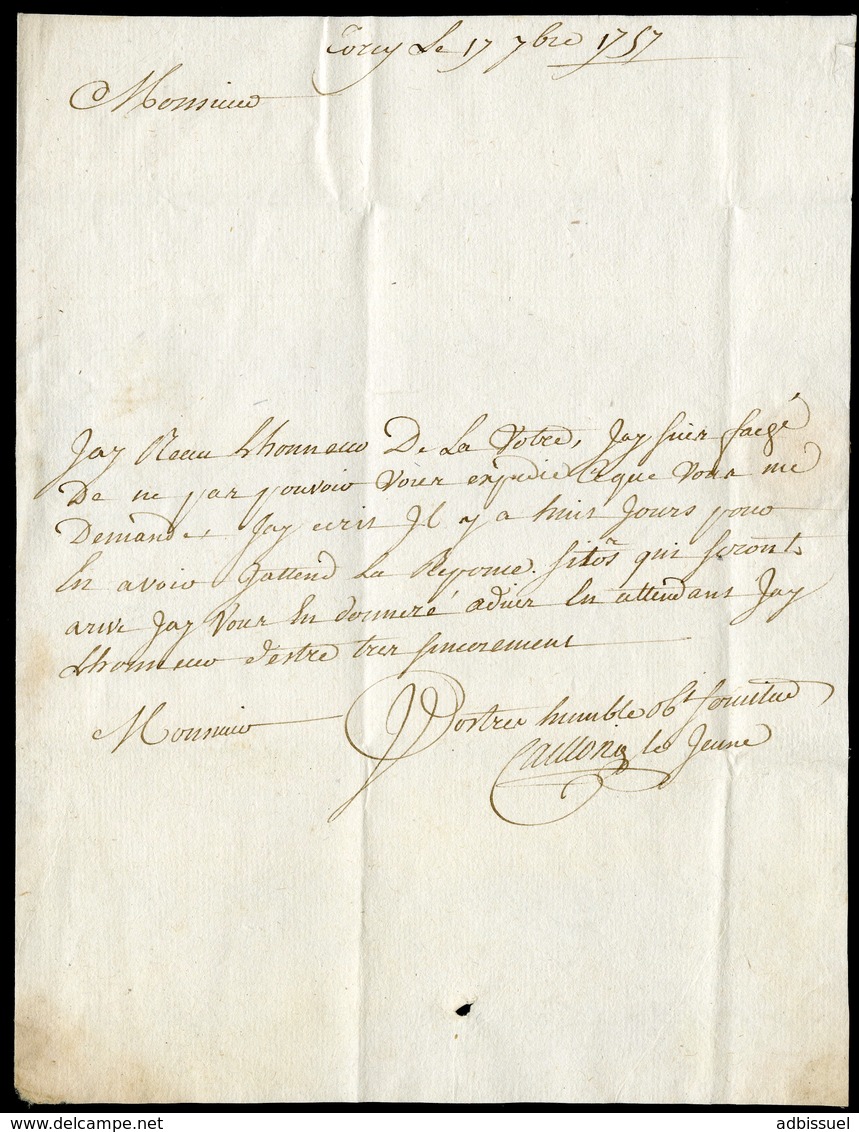 Torcy Le 17 7bre 1757
Monsieur
Jay Recu Lhonneur De La Votre, Jay suis faché
De ne pas pouvoir vous expedier ce que vous me
Demandes Jay ecrit Jl y a huit Jours pour
En avoir Jattend La Reponse. sitos qui seronts
arive Jay Vous En donneré advis En attendant Jay
Lhonneur destre tres sincerement
Monsieur Vostres humble obt serviteur
le Jeune
adbissuel